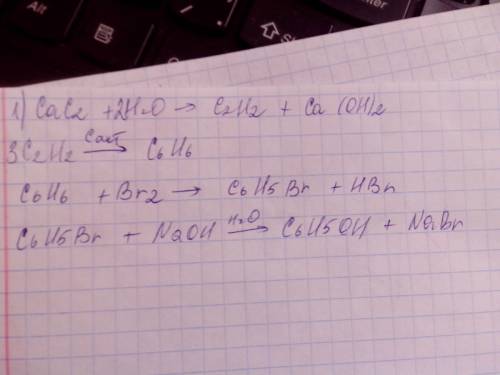 Alt
Shift
Enter
1) CaC2 + 2H2O → C2H2 + Ca(OH)2
3C2H2 → C6H6
C6H6 + Br2 → C6H5Br + HBr
C6H5Br + NaOH H2O → C6H5OH + NaBr